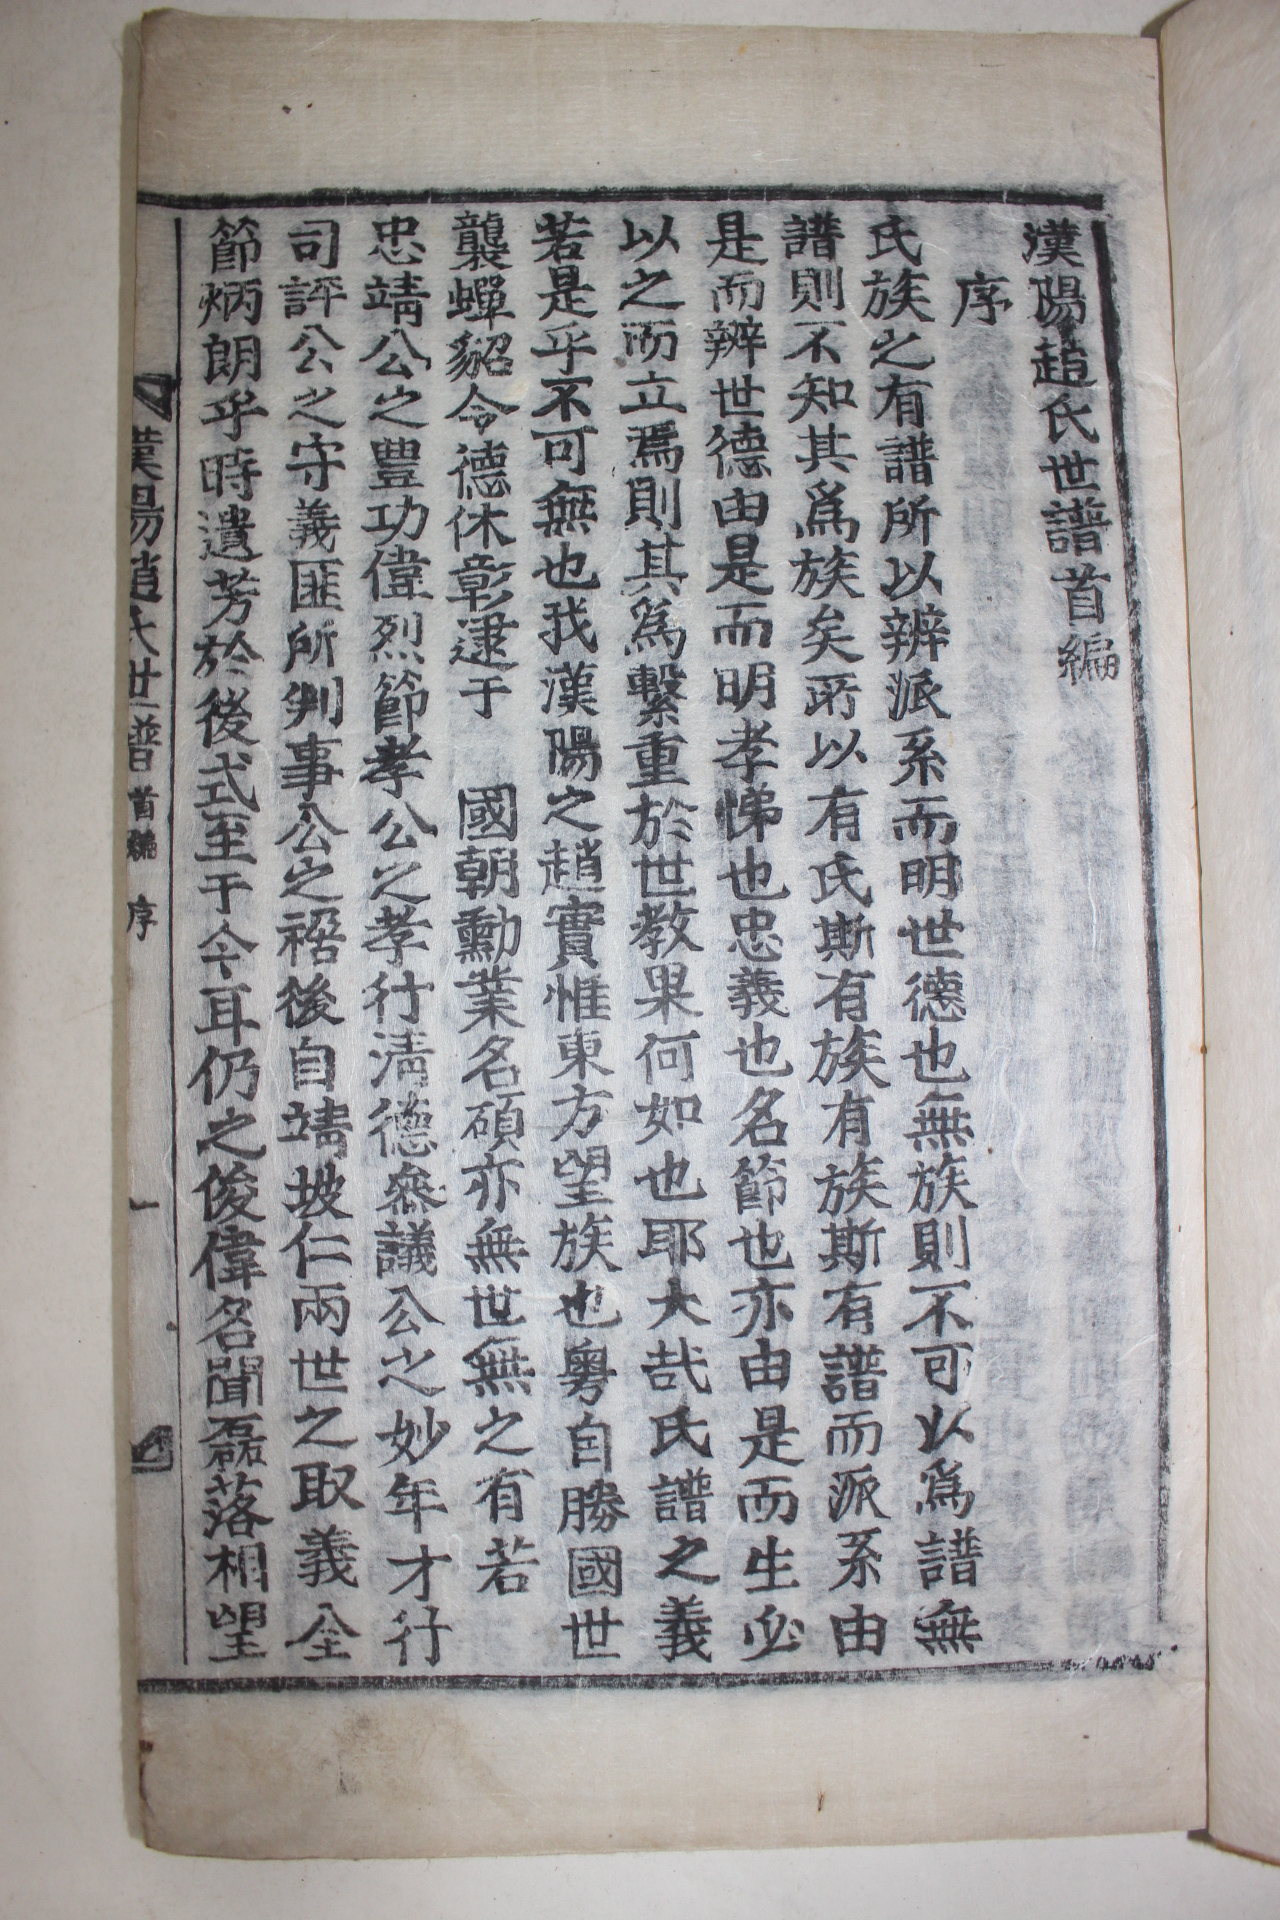 漢陽趙氏世譜首編
序
氏族之有譜所以辨派系而明世德也無族則不可以爲譜無
譜則不知其爲族矣所以有氏斯有族有族斯有譜而派系由
是而辨世德由是而明孝悌也忠義也名節也亦由是而生必
以之而立焉則其爲繫重於世教果何如也耶大哉氏譜之義
若是乎不可無也我漢陽之趙實惟東方望族也粤自勝國世
襲蟬貂令德休彰逮于 國朝勳業名碩亦無世無之有若
忠靖公之豐功偉烈節孝公之孝行淸德叅議公之妙年才行
司評公之守義匪所判事公之裕後自靖坡仁兩世之取義全
節炳朗乎時遺芳於後式至于今耳仍之俊偉名聞磊落相望
漢陽趙氏世譜 首編 序 一